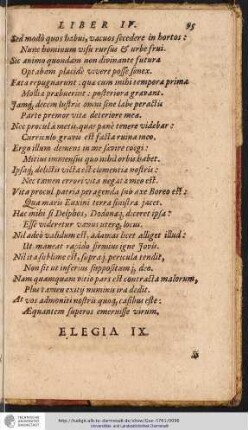 LIBER IV. 95
Sed modò quos habui, vacuos secedere in hortos:
Nunc hominum visu rursus & urbe frui.
Sic animo quondam non divinante futura
Optabam placidè vivere posse senex.
Fata repugnarunt: quæ cum mihi tempora prima
Mollia præbuerint: posteriora gravant.
Jamq́; decem lustris omni sine labe peractis
Parte premor vitæ deteriore meæ.
Nec procul à metis, quas penè tenere videbar:
Curriculo gravis est facta ruina meo.
Ergo illum demens in me sævire coëgi:
Mitius immensus quo nihil orbis habet.
Ipsaq́; delictis victa est clementia nostris:
Nec tamen errori vita negata meo est.
Vita procul patria peragenda sub axe Boreo est:
Qua maris Euxini terra sinistra jacet.
Hæc mihi si Delphos, Dodonaq́; diceret ipsa:
Esse videretur vanus uterq́; locus.
Nil adeò validum est, adamas licet alliget illud:
Ut maneat rapido firmius igne Jovis.
Nil ita sublime est, supraq́; pericula tendit,
Non sit ut inferius suppositumq́; deo.
Nam quamquam vitio pars est contracta malorum,
Plus tamen exitij numinis ira dedit.
At vos admoniti nostris quoq́; casibus este:
Æquantem superos emeruisse virum.
ELEGIA IX.